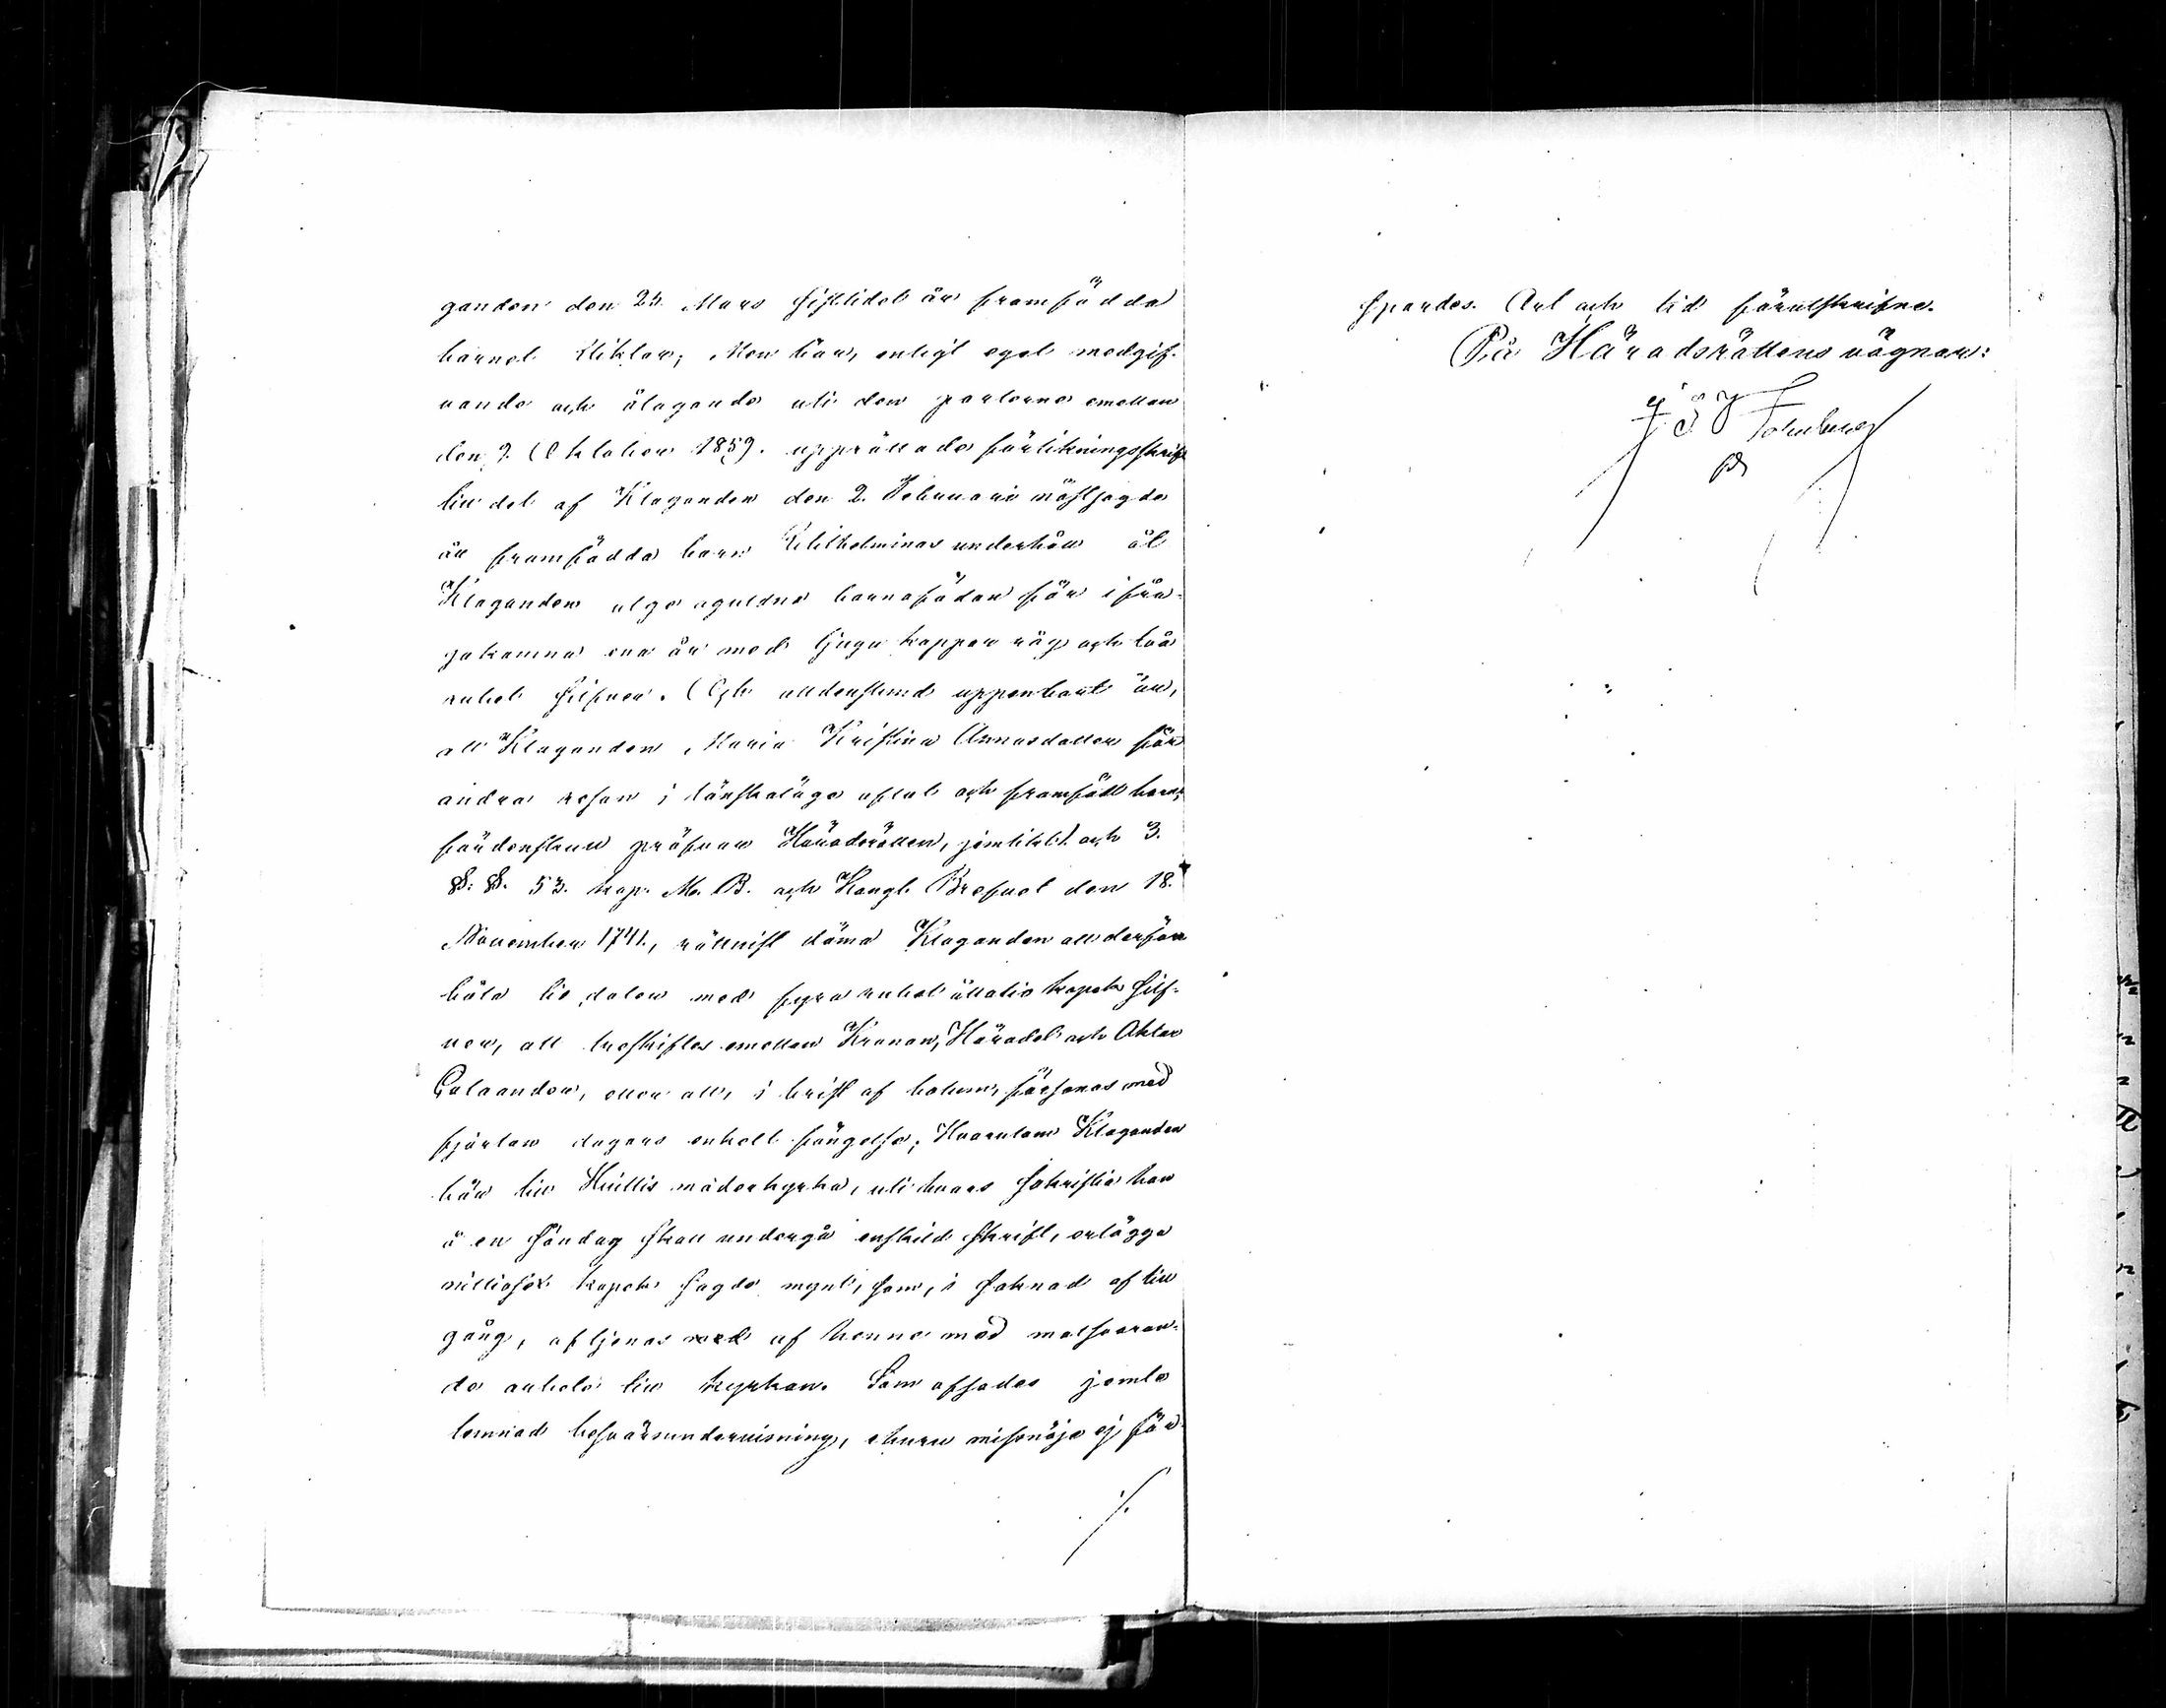 ganden den 25. Mars sistlidet år framfödda
barnet Viktor; Men bör, enligt eget medgif-
vande och åtagande uti den parterne emellan
den 7. Oktober 1859. upprättade förlikningsskrift
till det af Klaganden den 2. Februari nästsagde
år framfödda barn Wilhelminas underhåll åt
Klaganden utge oguldne barnafödan för ifrå-
gakomna ena år med tjugu kappar råg och två
rubel silfver. Och alldenstund uppenbart är,
att Klaganden Maria Kristina Annasdotter för
andra resan i lönskaläge aflat och framfödt barn;
fördenskull pröfvar Häradsrätten, jemlikt 1. och 3.
§: §. 53. kap. M. B. och Kongl. Brefvet den 18.
November 1741., rättvist döma Klaganden att derför
böta tio daler med fyra rubel åttatio kopek silf-
ver, att treskiftes emellan Kronan, Häradet och Aktor
Calaander, eller att, i brist af botum, försonas med
fjorton dagars enkelt fängelse; Hvarutom Klaganden
bör till Huittis moderkyrka, uti hvars sakristia hon
å en söndag skall undergå enskild skrift, erlägga
nittiosex kopek sagde mynt, som, i saknad af till-
gång, aftjenas af henne med motsvaran-
de arbete till kyrkan. Som afsades jemte
lemnad besvärsundervisning, ehuru missnöje ej för-
./.
spordes. Ort och tid förutskrifne.
På Häradsrättens vägnar: